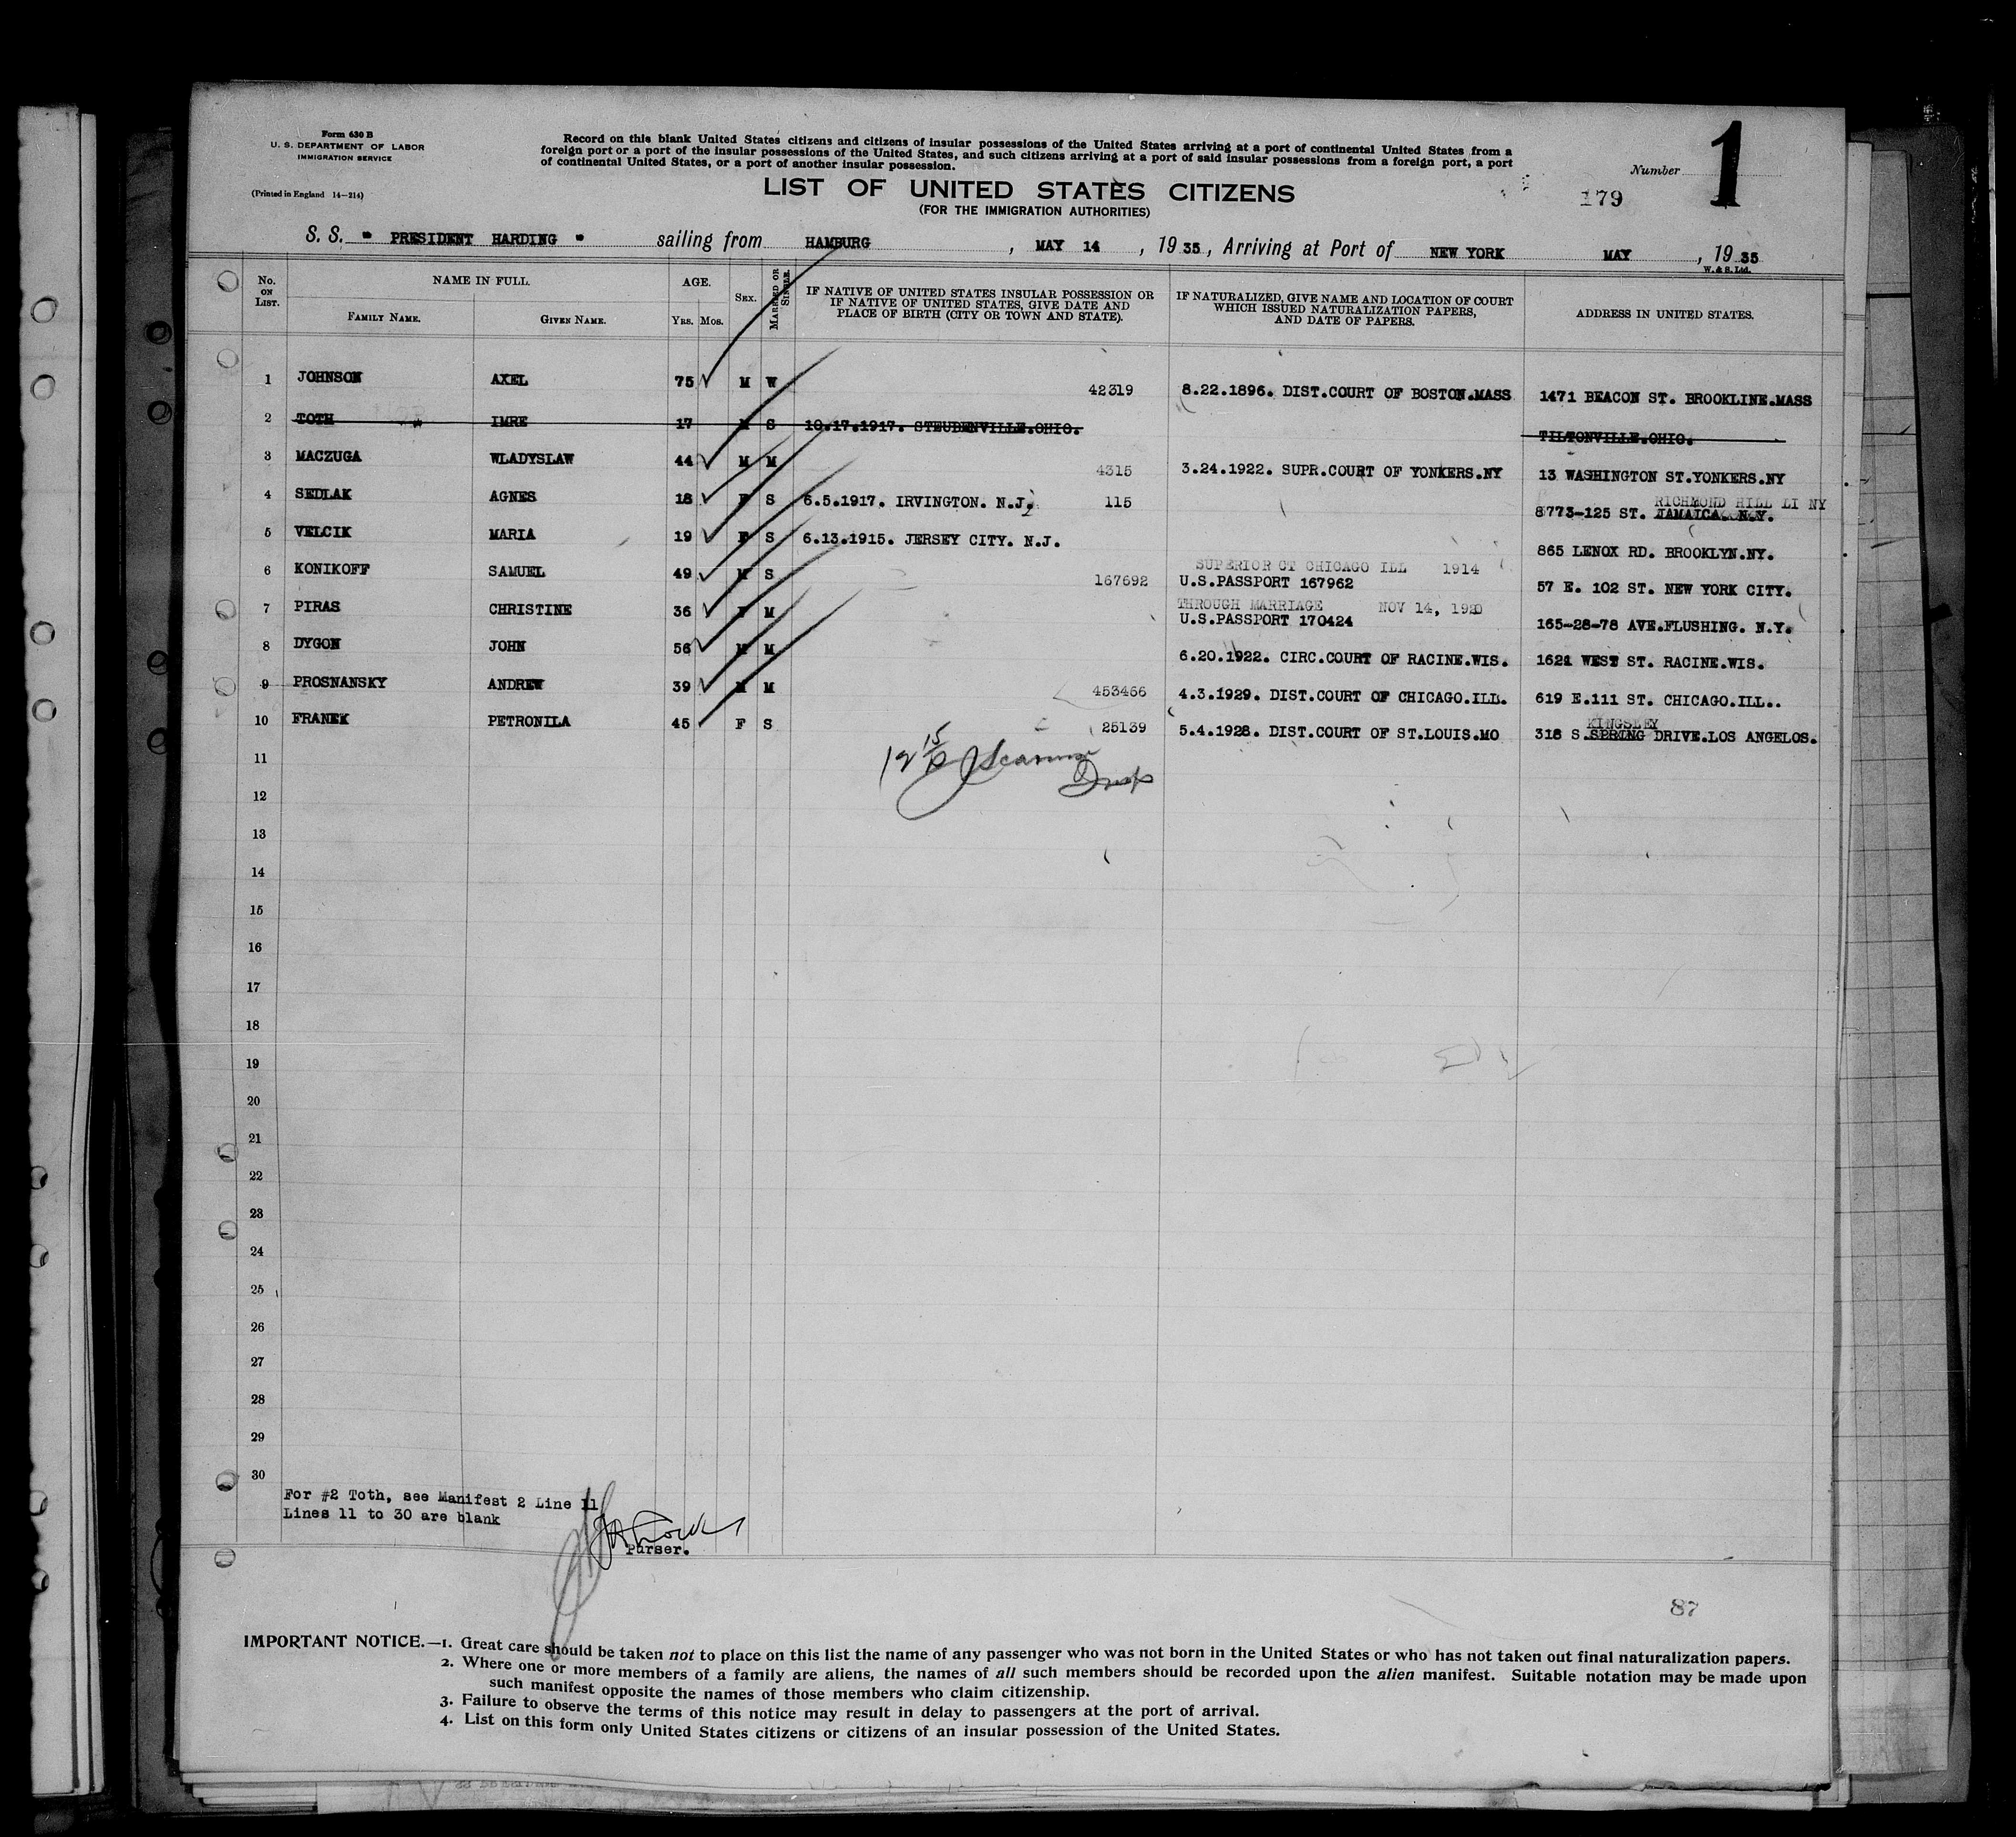 Form 630 B
U. S. DEPARTMENT OF LABOR
IMMIGRATION SERVICE
(Printed in England 14—214)
Record on this blank United States citizens and citizens of insular possessions of the United States arriving at a port of continental United States from a
foreign port or a port of the insular possessions of the United States, and such citizens arriving at a port of said insular possessions from a foreign port, a port
of continental United States, or a port of another insular possession.
Number 1
179
LIST OF UNITED STATES CITIZENS
(FOR THE IMMIGRATION AUTHORITIES)
S. S. " PRESIDENT HARDING " sailing from HAMBURG, MAY 14, 1935, Arriving at Port of NEW YORK MAY, 1935
W. & S. Ltd.
No. ON LIST. NAME IN FULL. AGE. SEX. MARRIED OR SINGLE. IF NATIVE OF UNITED STATES INSULAR POSSESSION OR IF NATIVE OF UNITED STATES, GIVE DATE AND PLACE OF BIRTH (CITY OR TOWN AND STATE). IF NATURALIZED, GIVE NAME AND LOCATION OF COURT WHICH ISSUED NATURALIZATION PAPERS, AND DATE OF PAPERS. ADDRESS IN UNITED STATES.
FAMILY NAME. GIVEN NAME. YRS. MOS.
1 JOHNSON AXEL 75 M W 42319 8.22.1896. DIST.COURT OF BOSTON.MASS 1471 BEACON ST. BROOKLINE.MASS
2 TOTH IMRE 17 M S 10.17.1917. STEUBENVILLE.OHIO. TILTONVILLE.OHIO.
3 MACZUGA WLADYSLAW 44 M M 4315 3.24.1922. SUPR.COURT OF YONKERS.NY 13 WASHINGTON ST.YONKERS.NY
RICHMOND HILL LI NY
4 SEDLAK AGNES 18 F S 6.5.1917. IRVINGTON. N.J. 115 8773-125 ST. JAMAICA. N.Y.
5 VELCIK MARIA 19 F S 6.13.1915. JERSEY CITY. N.J. 865 LENOX RD. BROOKLYN.NY.
SUPERIOR CT CHICAGO ILL 1914
6 KONIKOFF SAMUEL 49 M S 167692 U.S.PASSPORT 167962 57 E. 102 ST. NEW YORK CITY.
THROUGH MARRIAGE NOV 14, 1920
7 PIRAS CHRISTINE 36 F M U.S.PASSPORT 170424 165-28-78 AVE.FLUSHING. N.Y.
8 DYGON JOHN 56 M M 6.20.1922. CIRC.COURT OF RACINE.WIS. 1621 WEST ST. RACINE.WIS.
9 PROSNANSKY ANDREW 39 M M 453466 4.3.1929. DIST.COURT OF CHICAGO.ILL. 619 E.111 ST. CHICAGO.ILL..
KINGSLEY
10 FRANEK PETRONILA 45 F S 25139 5.4.1928. DIST.COURT OF ST.LOUIS.MO 318 S.SPRING DRIVE.LOS ANGELOS.
11
12
13
14
15
16
17
18
19
20
21
22
23
24
25
26
27
28
29
30
For #2 Toth, see Manifest 2 Line 11
Lines 11 to 30 are blank
Purser.
87
IMPORTANT NOTICE.—1. Great care should be taken not to place on this list the name of any passenger who was not born in the United States or who has not taken out final naturalization papers.
2. Where one or more members of a family are aliens, the names of all such members should be recorded upon the alien manifest. Suitable notation may be made upon
such manifest opposite the names of those members who claim citizenship.
3. Failure to observe the terms of this notice may result in delay to passengers at the port of arrival.
4. List on this form only United States citizens or citizens of an insular possession of the United States.